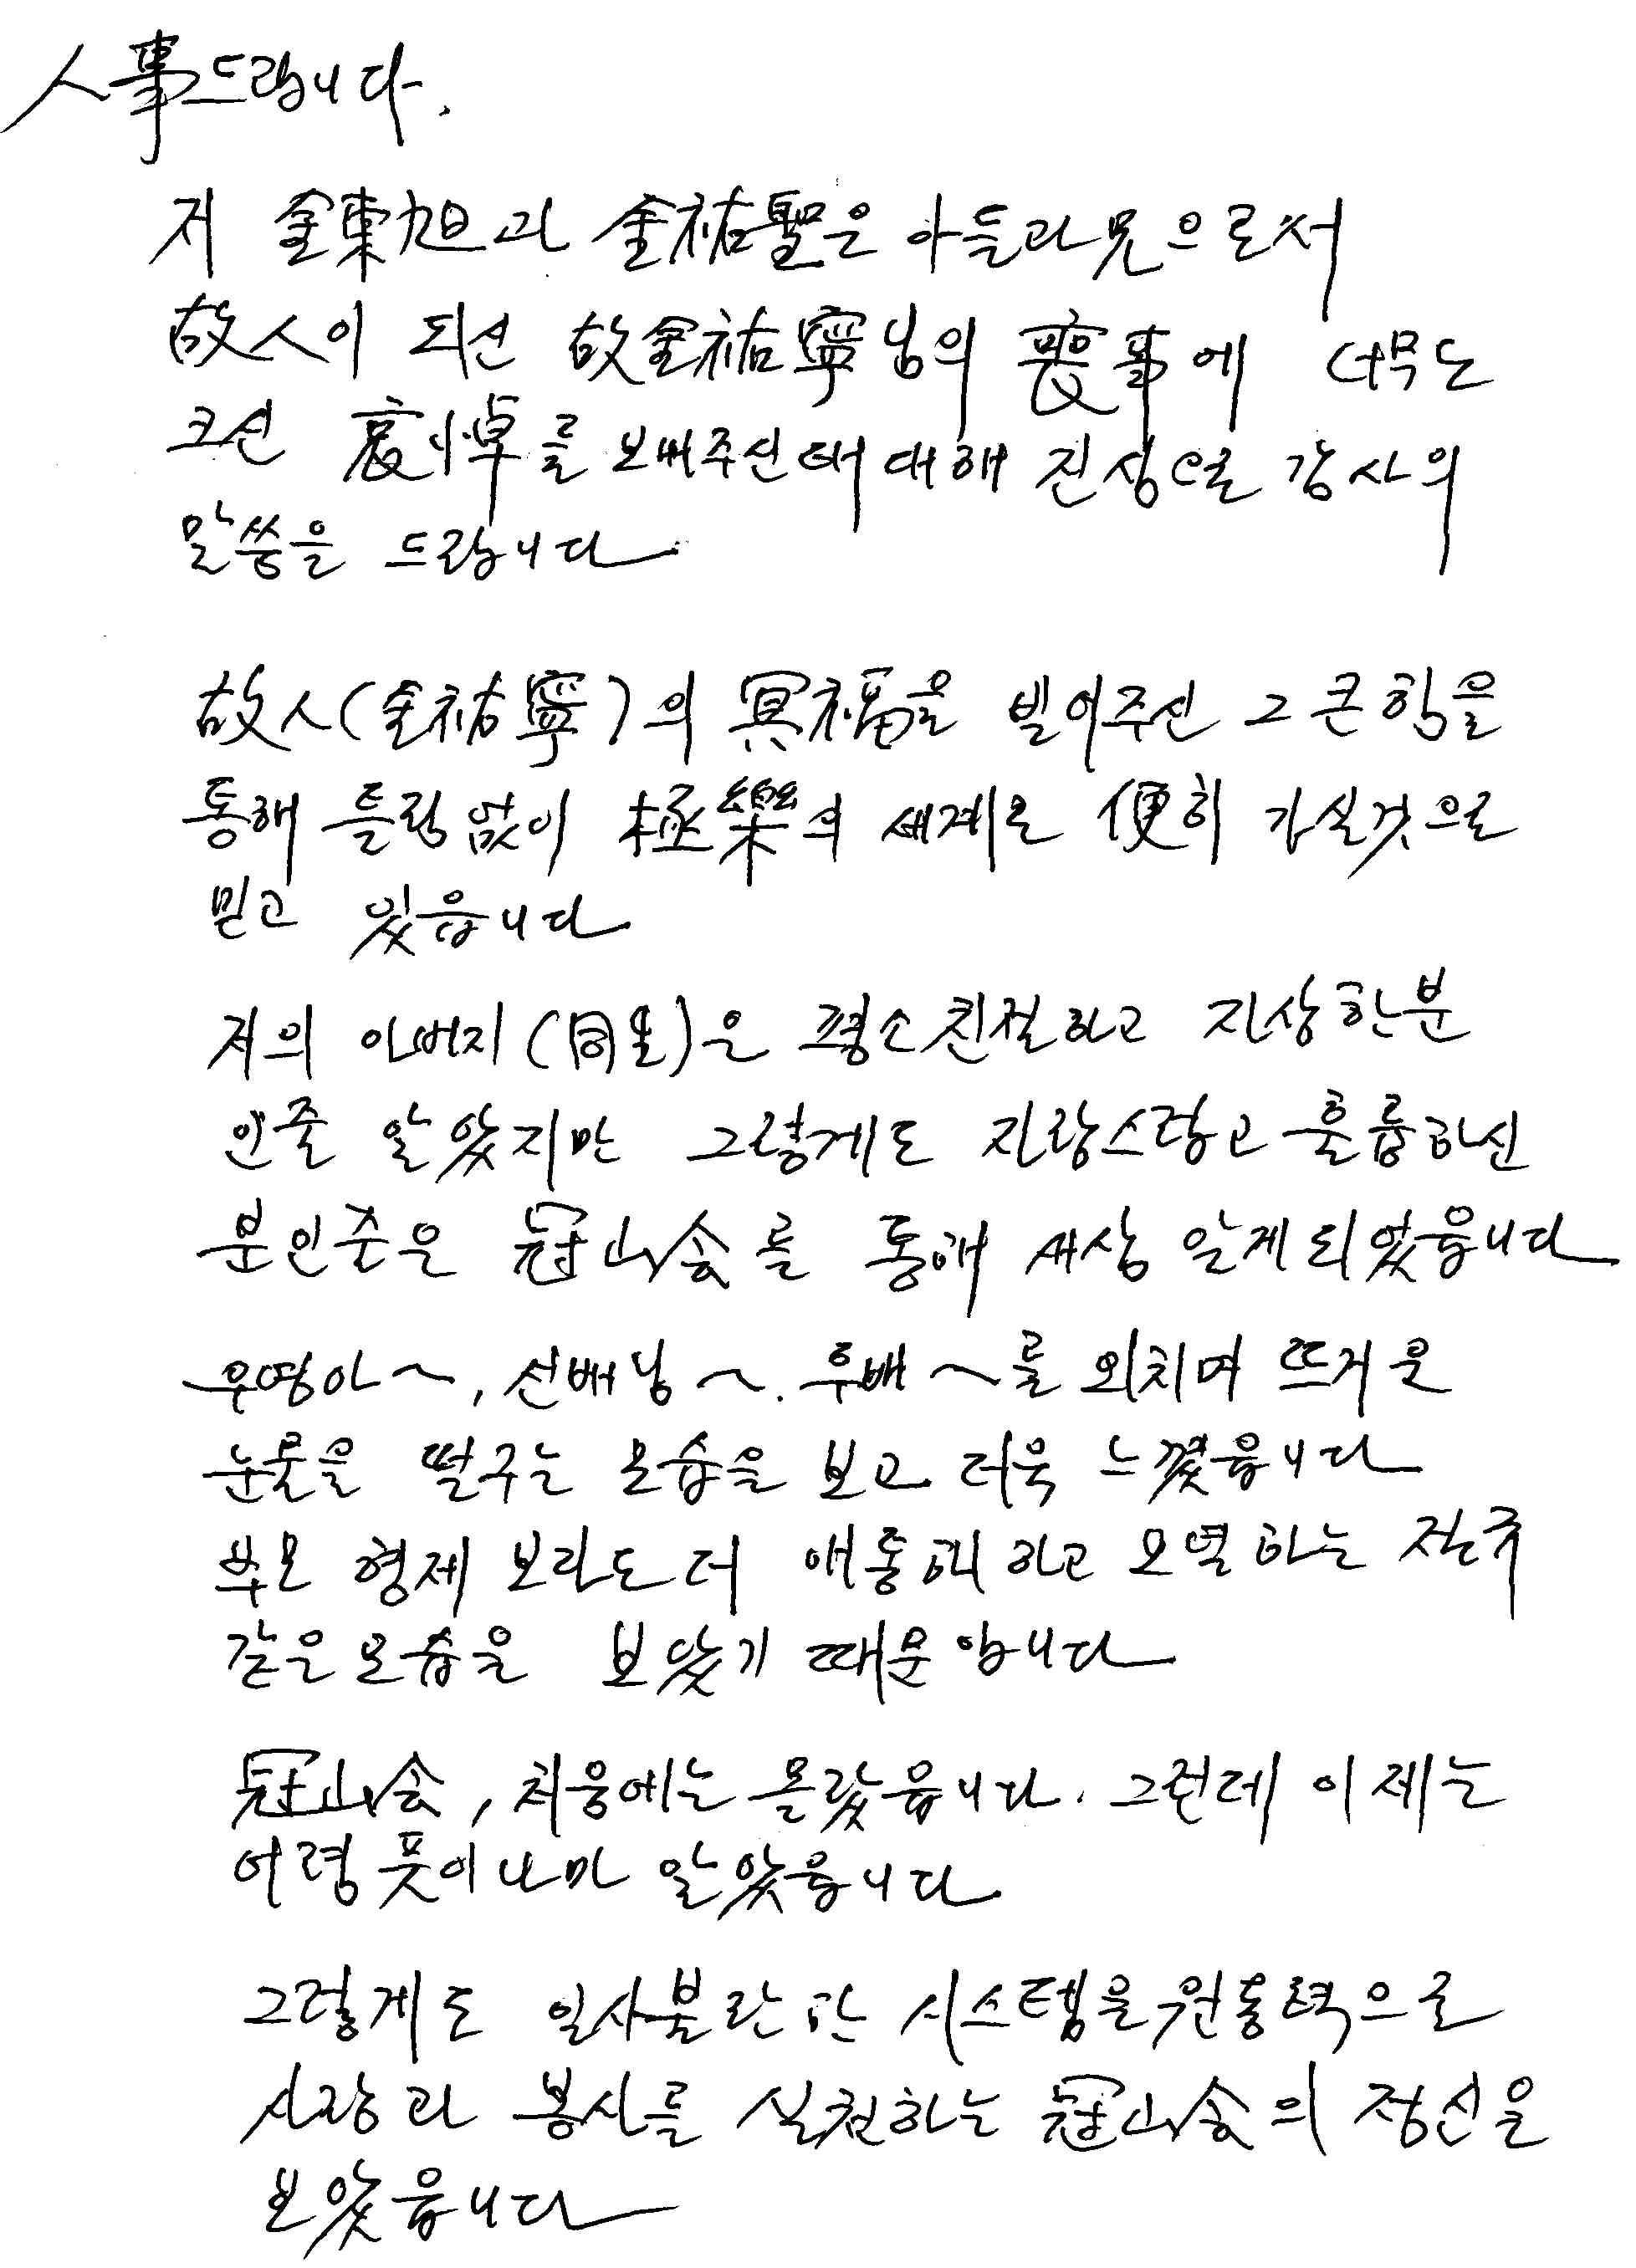 人事드립니다.
저 金東旭과 金祐聖은 아들과 兄으로서
故人이 되신 故金祐寧님의 喪事에 너무도
크신 哀悼를 보내주신데 대해 진심으로 감사의
말씀을 드립니다
故人(金祐寧)의 冥福을 빌어주신 그 큰힘을
통해 틀림없이 極樂의 세계로 便히 가실것으로
믿고 있읍니다
저의 아버지(同生)은 평소친절하고 자상한분
인줄 알았지만 그렇게도 자랑스럽고 훌륭하신
분인줄은 冠山会를 통해 새삼 알게되었읍니다
우영아~, 선배님~. 후배~를 외치며 뜨거운
눈물을 떨구는 모습을 보고 더욱 느꼈읍니다
부모 형제 보라도더 애통해하고 오열하는 전쥬
같은모습을 보았기 때문입니다
冠山会, 처음에는 몰랐읍니다. 그런데 이제는
어렴풋이나마 알았읍니다
그렇게도 일사불란한 시스템을원동력으로
사랑과 봉사를 실천하는 冠山会의 정신을
보았읍니다